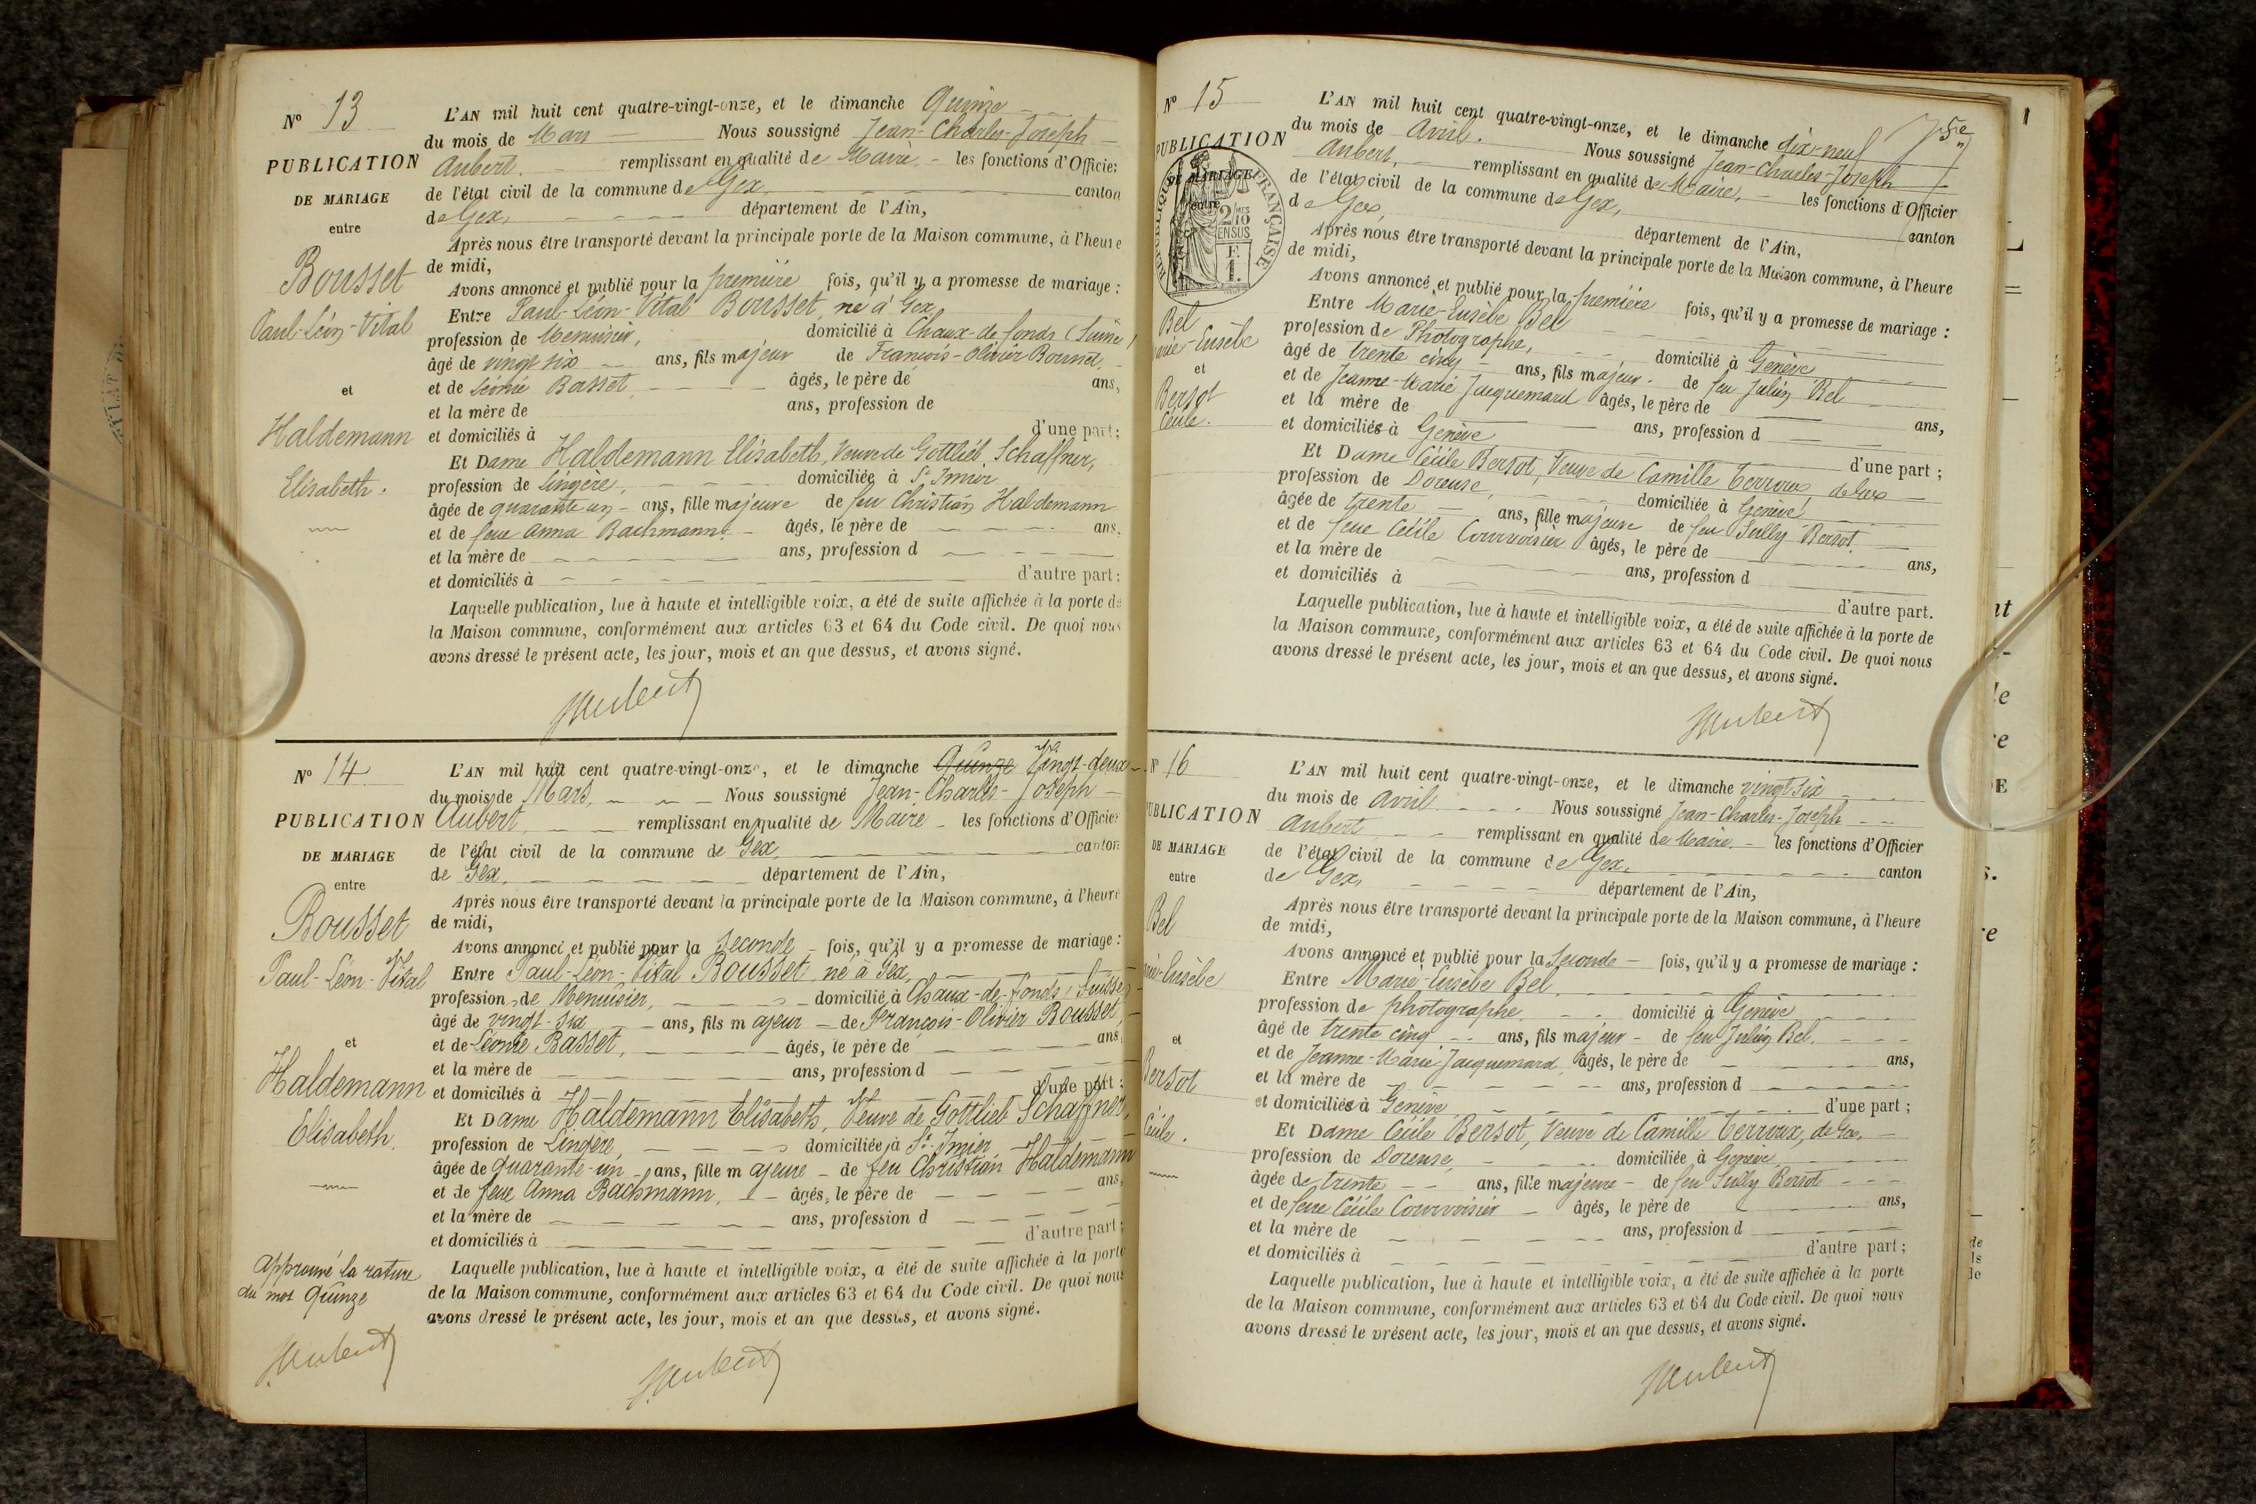 Nº 13
PUBLICATION
DE MARIAGE
entre
Bousset
Paul-Léon-Vital
et
Haldemann
Elisabeth.
L'AN mil huit cent quatre-vingt-onze, et le dimanche Quinze
du mois de Mars Nous soussigné Jean-Charles-Joseph
Aubert. remplissant en qualité de Maire les fonctions d'Officier
de l'état civil de la commune de Gex, canton
de Gex, département de l'Ain,
Après nous être transporté devant la principale porte de la Maison commune, à l'heure
de midi,
Avons annoncé et publié pour la première fois, qu'il y a promesse de mariage :
Entre Paul-Léon-Vital Bousset, né à Gex,
profession de Menuisier, domicilié à Chaux-de-fonds (Suisse)
âgé de vingt six ans, fils majeur de François-Olivier Bousset,
et de Léonie Basset, âgés, le père de ans,
et la mère de ans, profession de
et domiciliés à d'une part ;
Et Dame Haldemann Elisabeth, Veuve de Gottlieb Schaffner,
profession de Lingère, domiciliée à St Imier
âgée de quarante un ans, fille majeure de feu Christian Haldemann
et de feue Anna Bachmann. âgés, le père de ans,
et la mère de ans, profession d
et domiciliés à d'autre part :
Laquelle publication, lue à haute et intelligible voix, a été de suite affichée à la porte de
la Maison commune, conformément aux articles 63 et 64 du Code civil. De quoi nous
avons dressé le présent acte, les jour, mois et an que dessus, et avons signé.
JAubert
Nº 14
PUBLICATION
DE MARIAGE
entre
Bousset
Paul-Léon-Vital
et
Haldemann
Elisabeth.
approuvé la rature
du mot Quinze
JAubert
L'AN mil huit cent quatre-vingt-onze, et le dimanche Quinze Vingt-deux
du mois de Mars, Nous soussigné Jean-Charles-Joseph
Aubert, remplissant en qualité de Maire les fonctions d'Officier
de l'état civil de la commune de Gex, canton
de Gex, département de l'Ain,
Après nous être transporté devant la principale porte de la Maison commune, à l'heure
de midi,
Avons annoncé et publié pour la Seconde fois, qu'il y a promesse de mariage :
Entre Paul-Léon-Vital Bousset, né à Gex,
profession de Menuisier, domicilié à Chaux-de-fonds (Suisse)
âgé de vingt-six ans, fils majeur de François-Olivier Bousset,
et de Léonie Basset, âgés, le père de ans,
et la mère de ans, profession d
et domiciliés à d'une part ;
Et Dame Haldemann Elisabeth, Veuve de Gottlieb Schaffner,
profession de Lingère, domiciliée à St-Imier
âgée de quarante-un ans, fille majeure de feu Christian Haldemann
et de feue Anna Bachmann, âgés, le père de ans,
et la mère de ans, profession d
et domiciliés à d'autre part ;
Laquelle publication, lue à haute et intelligible voix, a été de suite affichée à la porte
de la Maison commune, conformément aux articles 63 et 64 du Code civil. De quoi nous
avons dressé le présent acte, les jour, mois et an que dessus, et avons signé.
JAubert
Nº 15
PUBLICATION
DE MARIAGE
entre
RÉPUBLIQUE FRANÇAISE
2/10 MES
EN SUS
F.
1.
Bel
arie-Eusèbe
et
Bersot
Cécile.
L'AN mil huit cent quatre-vingt-onze, et le dimanche dix-neuf
du mois de Avril. Nous soussigné Jean-Charles-Joseph
Aubert, remplissant en qualité de Maire, les fonctions d'Officier
de l'état civil de la commune de Gex, canton
de Gex, département de l'Ain,
Après nous être transporté devant la principale porte de la Maison commune, à l'heure
de midi,
Avons annoncé et publié pour la première fois, qu'il y a promesse de mariage :
Entre Marie-Eusèbe Bel
profession de Photographe, domicilié à Genève
âgé de trente cinq ans, fils majeur. de feu Julien Bel
et de Jeanne-Marie Jacquemard âgés, le père de ans,
et la mère de ans, profession d
et domiciliés à Genève d'une part ;
Et Dame Cécile Bersot, Veuve de Camille Terroux, de Gex
profession de Doreuse, domiciliée à Genève,
âgée de trente ans, fille majeure de feu Sully Bersot.
et de feue Cécile Courvoisier âgés, le père de ans,
et la mère de ans, profession d
et domiciliés à d'autre part.
Laquelle publication, lue à haute et intelligible voix, a été de suite affichée à la porte de
la Maison commune, conformément aux articles 63 et 64 du Code civil. De quoi nous
avons dressé le présent acte, les jour, mois et an que dessus, et avons signé.
JAubert
Nº 16
PUBLICATION
DE MARIAGE
entre
Bel
arie-Eusèbe
et
Bersot
Cécile.
L'AN mil huit cent quatre-vingt-onze, et le dimanche vingt six
du mois de avril Nous soussigné Jean-Charles-Joseph
Aubert remplissant en qualité de Maire. les fonctions d'Officier
de l'état civil de la commune de Gex, canton
de Gex, département de l'Ain,
Après nous être transporté devant la principale porte de la Maison commune, à l'heure
de midi,
Avons annoncé et publié pour la Seconde fois, qu'il y a promesse de mariage :
Entre Marie-Eusèbe Bel,
profession de photographe, domicilié à Genève
âgé de trente cinq ans, fils majeur de feu Julien Bel.
et de Jeanne-Marie Jacquemard, âgés, le père de ans,
et la mère de ans, profession d
et domiciliés à Genève d'une part ;
Et Dame Cécile Bersot, Veuve de Camille Terroux, de Gex,
profession de Doreuse, domiciliée à Genève,
âgée de trente ans, fille majeure de feu Sully Bersot
et de feue Cécile Courvoisier âgés, le père de ans,
et la mère de ans, profession d
et domiciliés à d'autre part ;
Laquelle publication, lue à haute et intelligible voix, a été de suite affichée à la porte
de la Maison commune, conformément aux articles 63 et 64 du Code civil. De quoi nous
avons dressé le présent acte, les jour, mois et an que dessus, et avons signé.
JAubert